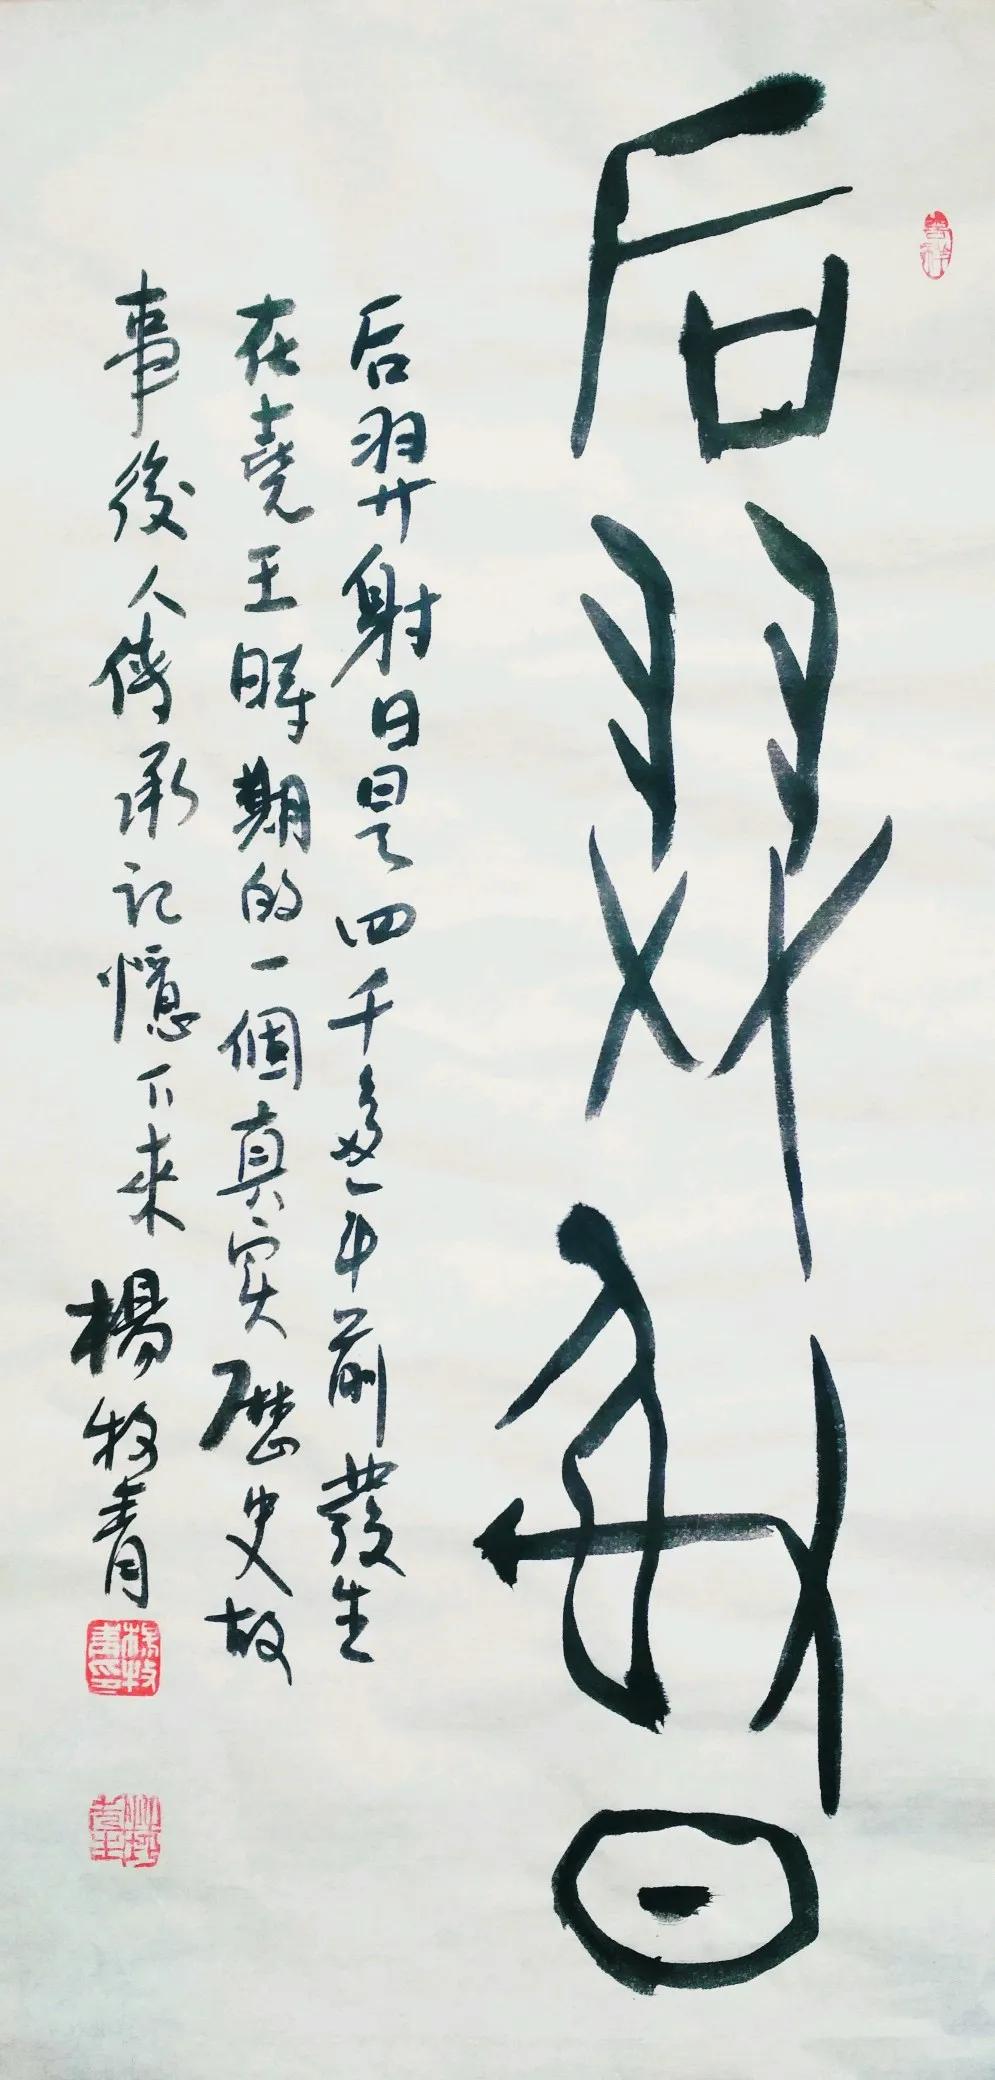 后羿射日
后羿射日是四千多年前發生
在堯王時期的一個真实歷史故
事後人傳承記憶下來 楊牧青
楊牧青印